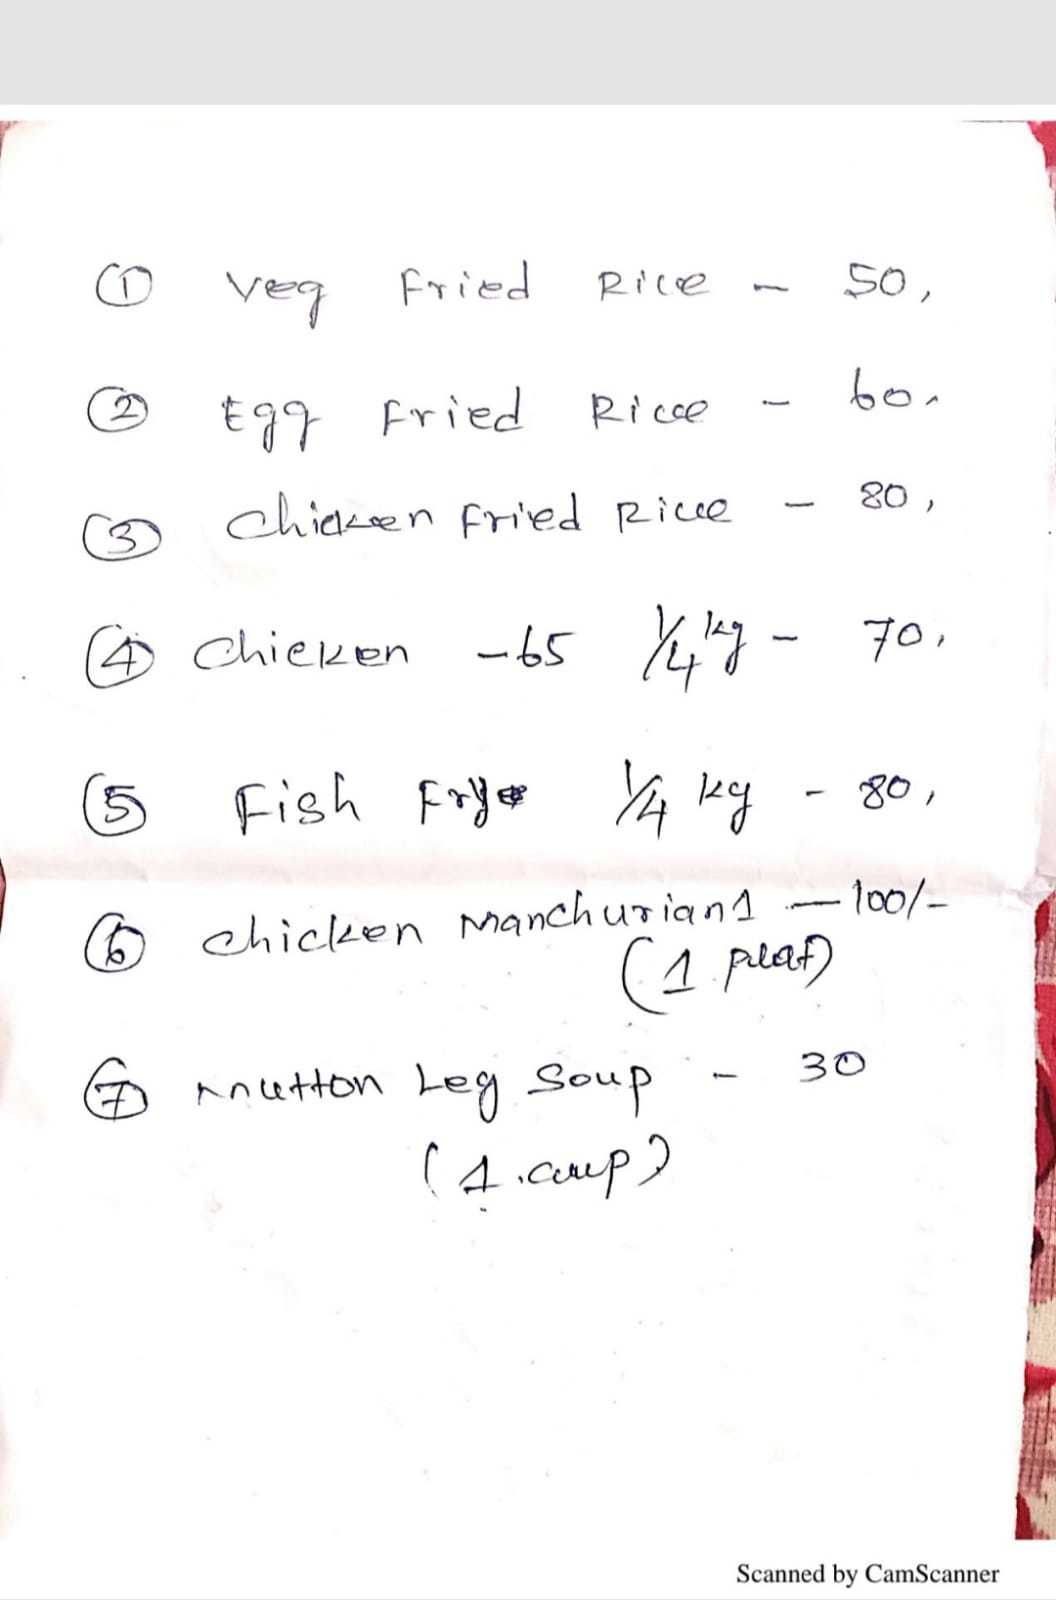 ① Veg Fried Rice - 50,
② Egg Fried Rice - 60,
③ Chicken Fried Rice - 80,
④ Chicken -65 1/4 kg - 70,
⑤ Fish Fry 1/4 kg - 80,
⑥ Chicken Manchurian 1 - 100/-
(1 plat)
⑦ Mutton Leg Soup - 30
(1.cup)
Scanned by CamScanner